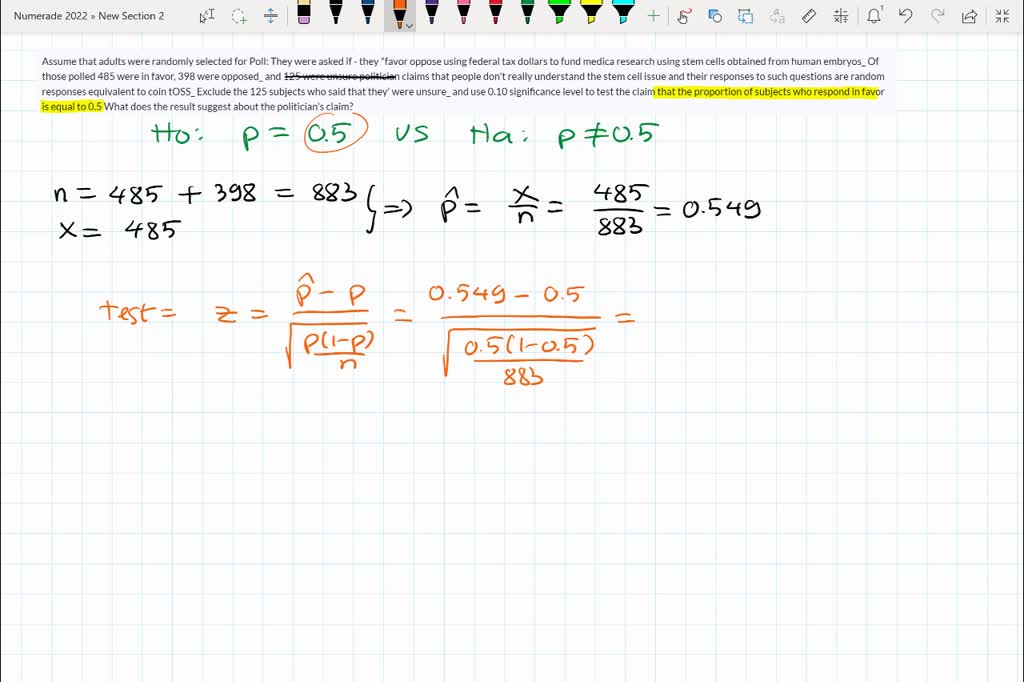 Numerade 2022 » New Section 2
Assume that adults were randomly selected for Poll: They were asked if - they "favor oppose using federal tax dollars to fund medica research using stem cells obtained from human embryos_ Of
those polled 485 were in favor, 398 were opposed_ and 125 were unsure politician claims that people don't really understand the stem cell issue and their responses to such questions are random
responses equivalent to coin tOSS_ Exclude the 125 subjects who said that they' were unsure_ and use 0.10 significance level to test the claim that the proportion of subjects who respond in favor
is equal to 0.5 What does the result suggest about the politician's claim?
Ho: p = 0.5 vs Ha: p ≠ 0.5
n = 485 + 398 = 883 } => p̂ = x/n = 485/883 = 0.549
x = 485
test = z = (p̂ - p)/√(p(1-p)/n) = (0.549 - 0.5)/√(0.5(1-0.5)/883) =